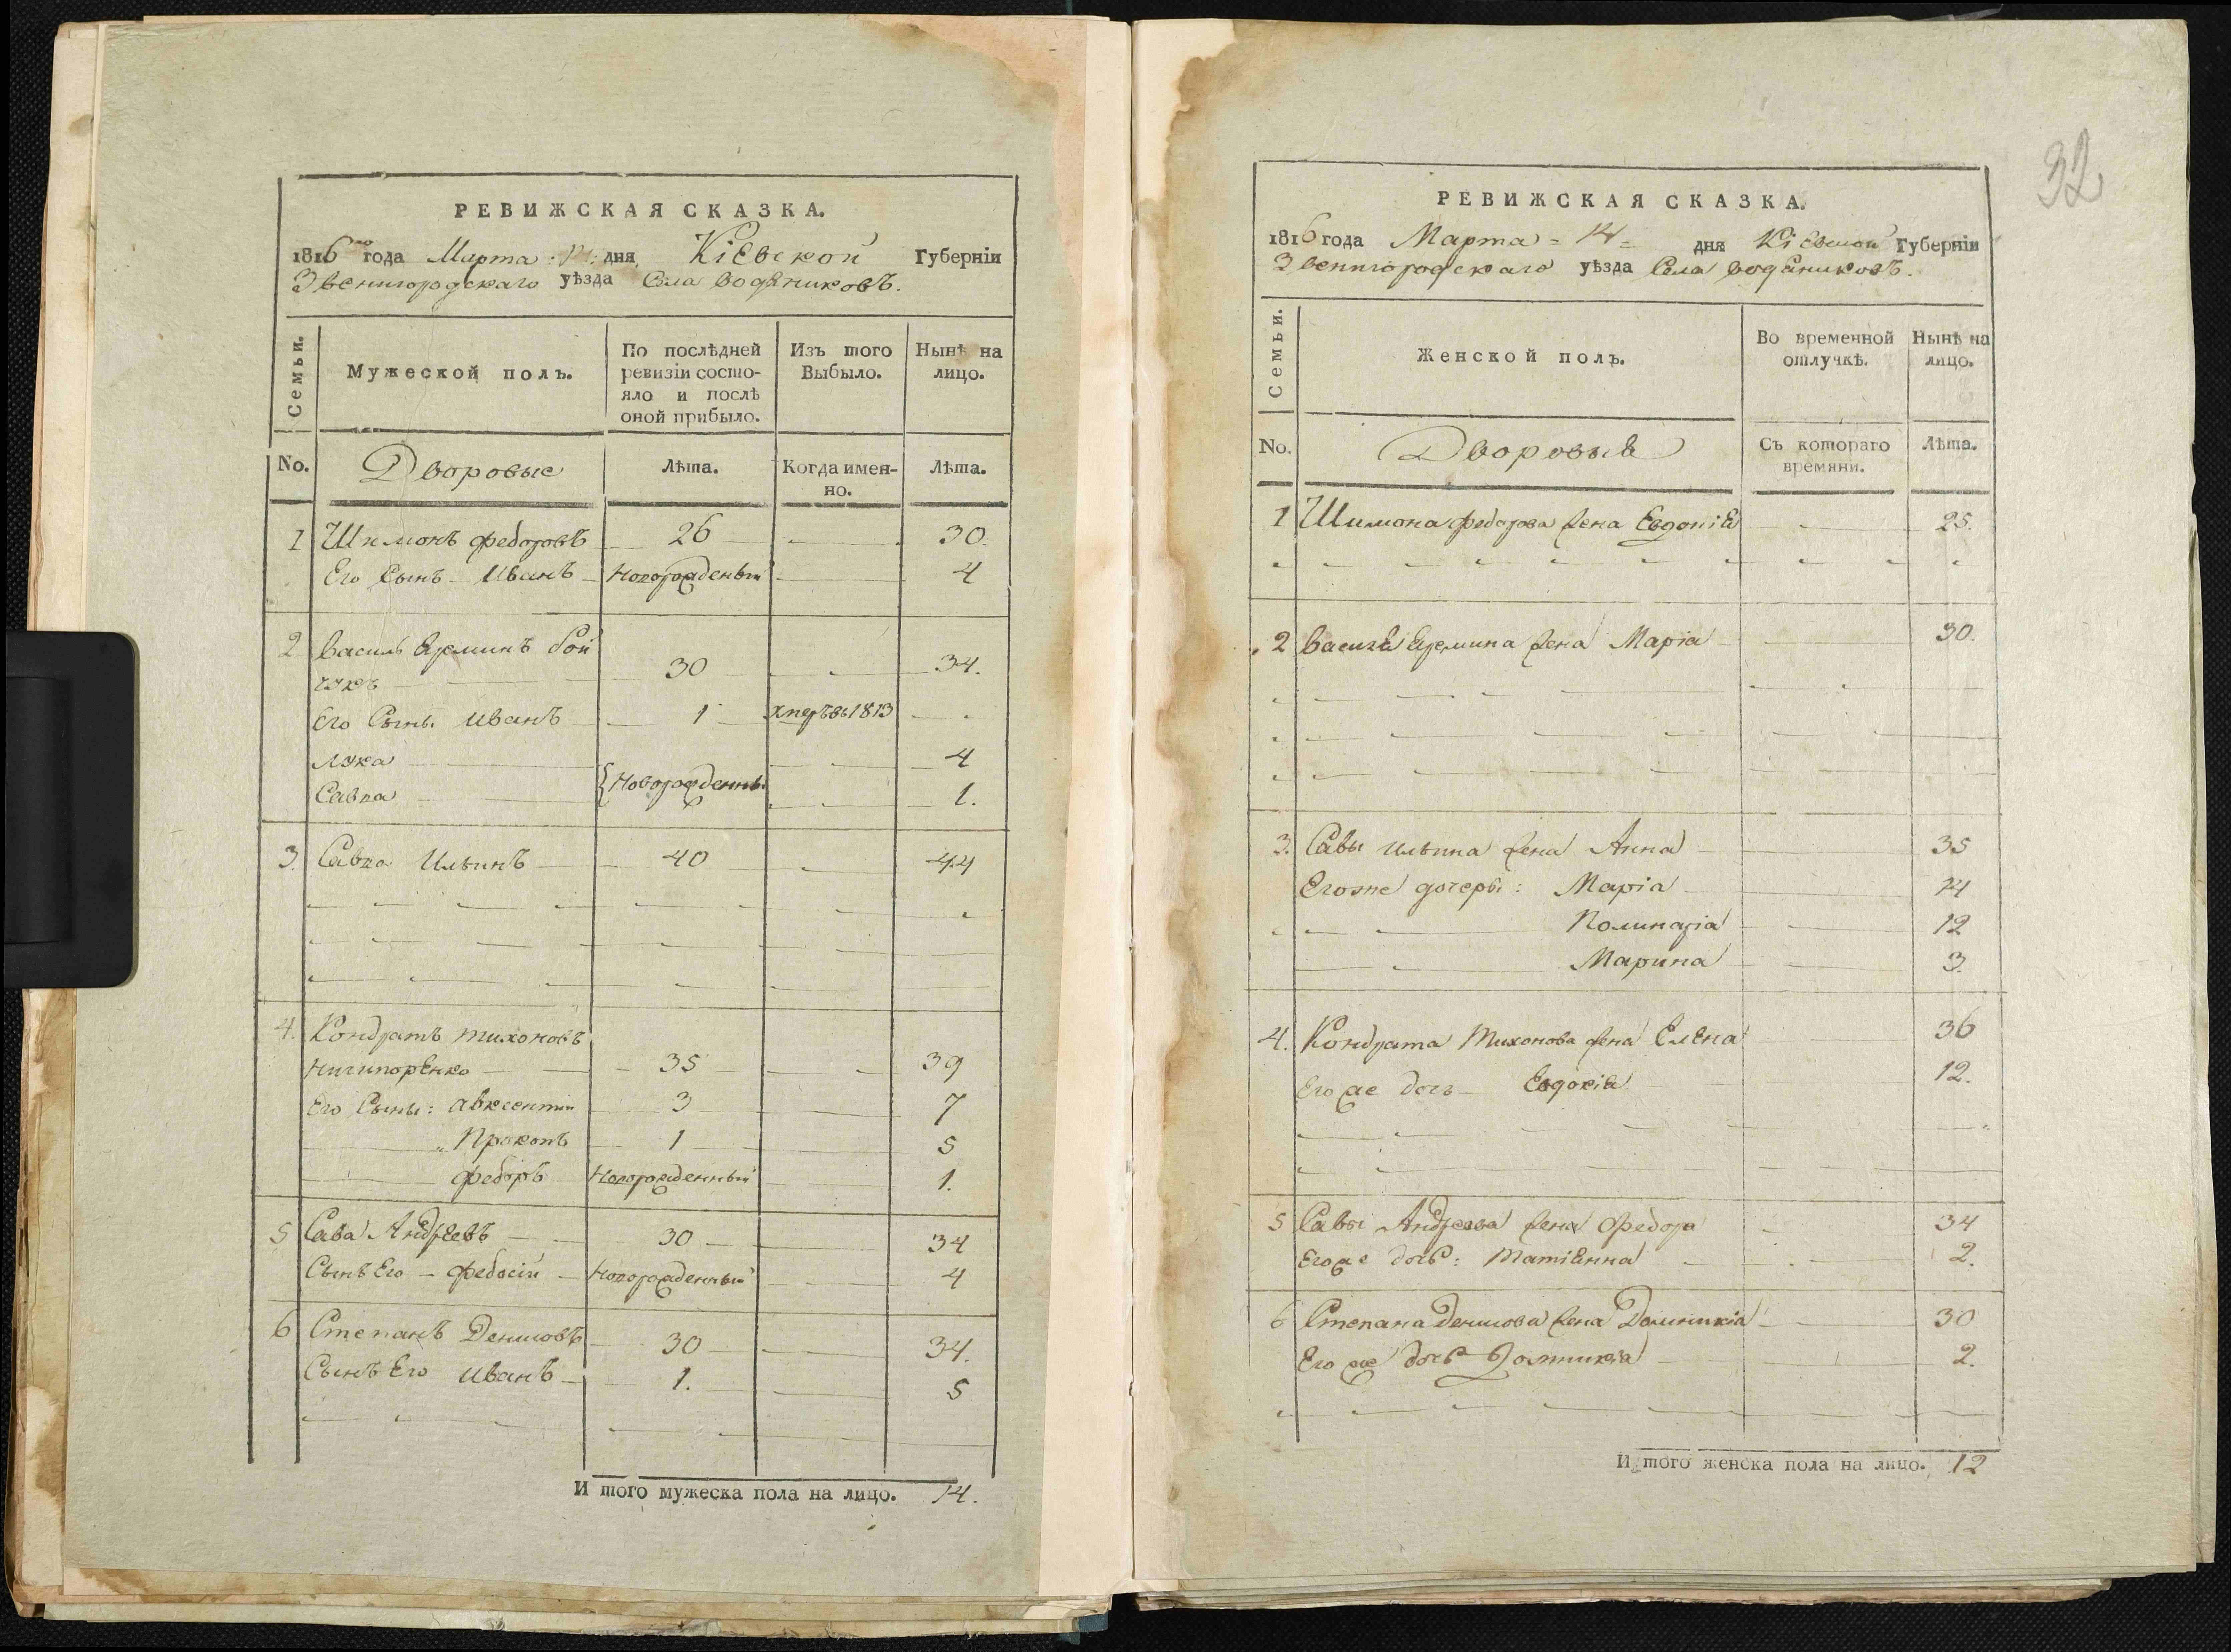 РЕВИЖСКАЯ СКАЗКА.
1816го года Марта 14 дня Кіевской Губерніи
Звенигородскаго уѣзда Села водяниковъ.
Семьи.
Мужеской полъ.
По послѣдней ревизіи состо-
яло и послѣ
оной прибыло.
Изъ того
Выбыло.
Нынѣ на
лицо.
No.
Дворовые
Лѣта.
Когда имен-
но.
Лѣта.
1 Шимонъ федоровъ 26 30.
Его Сынъ Иванъ Новорожденый 4
2 василь Яреминъ
30 34.
Его Сыны Иванъ 1 1813
лука 4
Савка Новорожденны 1.
3. Савка Ильинъ 40 44
4. Кондратъ тихоновъ
Ничипоренко 35 39
Его Сыны: авксентии 3 7
Прокопъ 1 5
федоръ Новорожденный 1.
5 Сава Андреевъ 30 34
Сынъ Его федосіи Новорожденный 4
6 Степанъ Денисовъ 30 34.
Сынъ Его Иванъ 1. 5
И того мужеска пола на лицо. 14.
32
РЕВИЖСКАЯ СКАЗКА.
1816 года Марта 14 дня Кіевской Губерніи
Звенигородскаго уѣзда Села водяниковъ.
Семьи.
Женской полъ.
Во временной
отлучкѣ.
Нынѣ на
лицо.
No.
Дворовыя
Съ котораго
времяни.
Лѣта.
1 Шимона федорова жена 25.
2 василя Яремина жена Маріа 30.
3. Савы ильина жена Анна 35
Егоже дочеры: Маріа 14
Полинаріа 12
Марина 3.
4. Кондрата Тихонова жена Елена 36
Его же дочь Евдокія 12.
5 Савы Андреева жена Федора 34
Его же дочь: Татіянна 2.
6 Степана Денисова жена Доминикіа 30
Его же дочь 2.
И того женска пола на лицо. 12